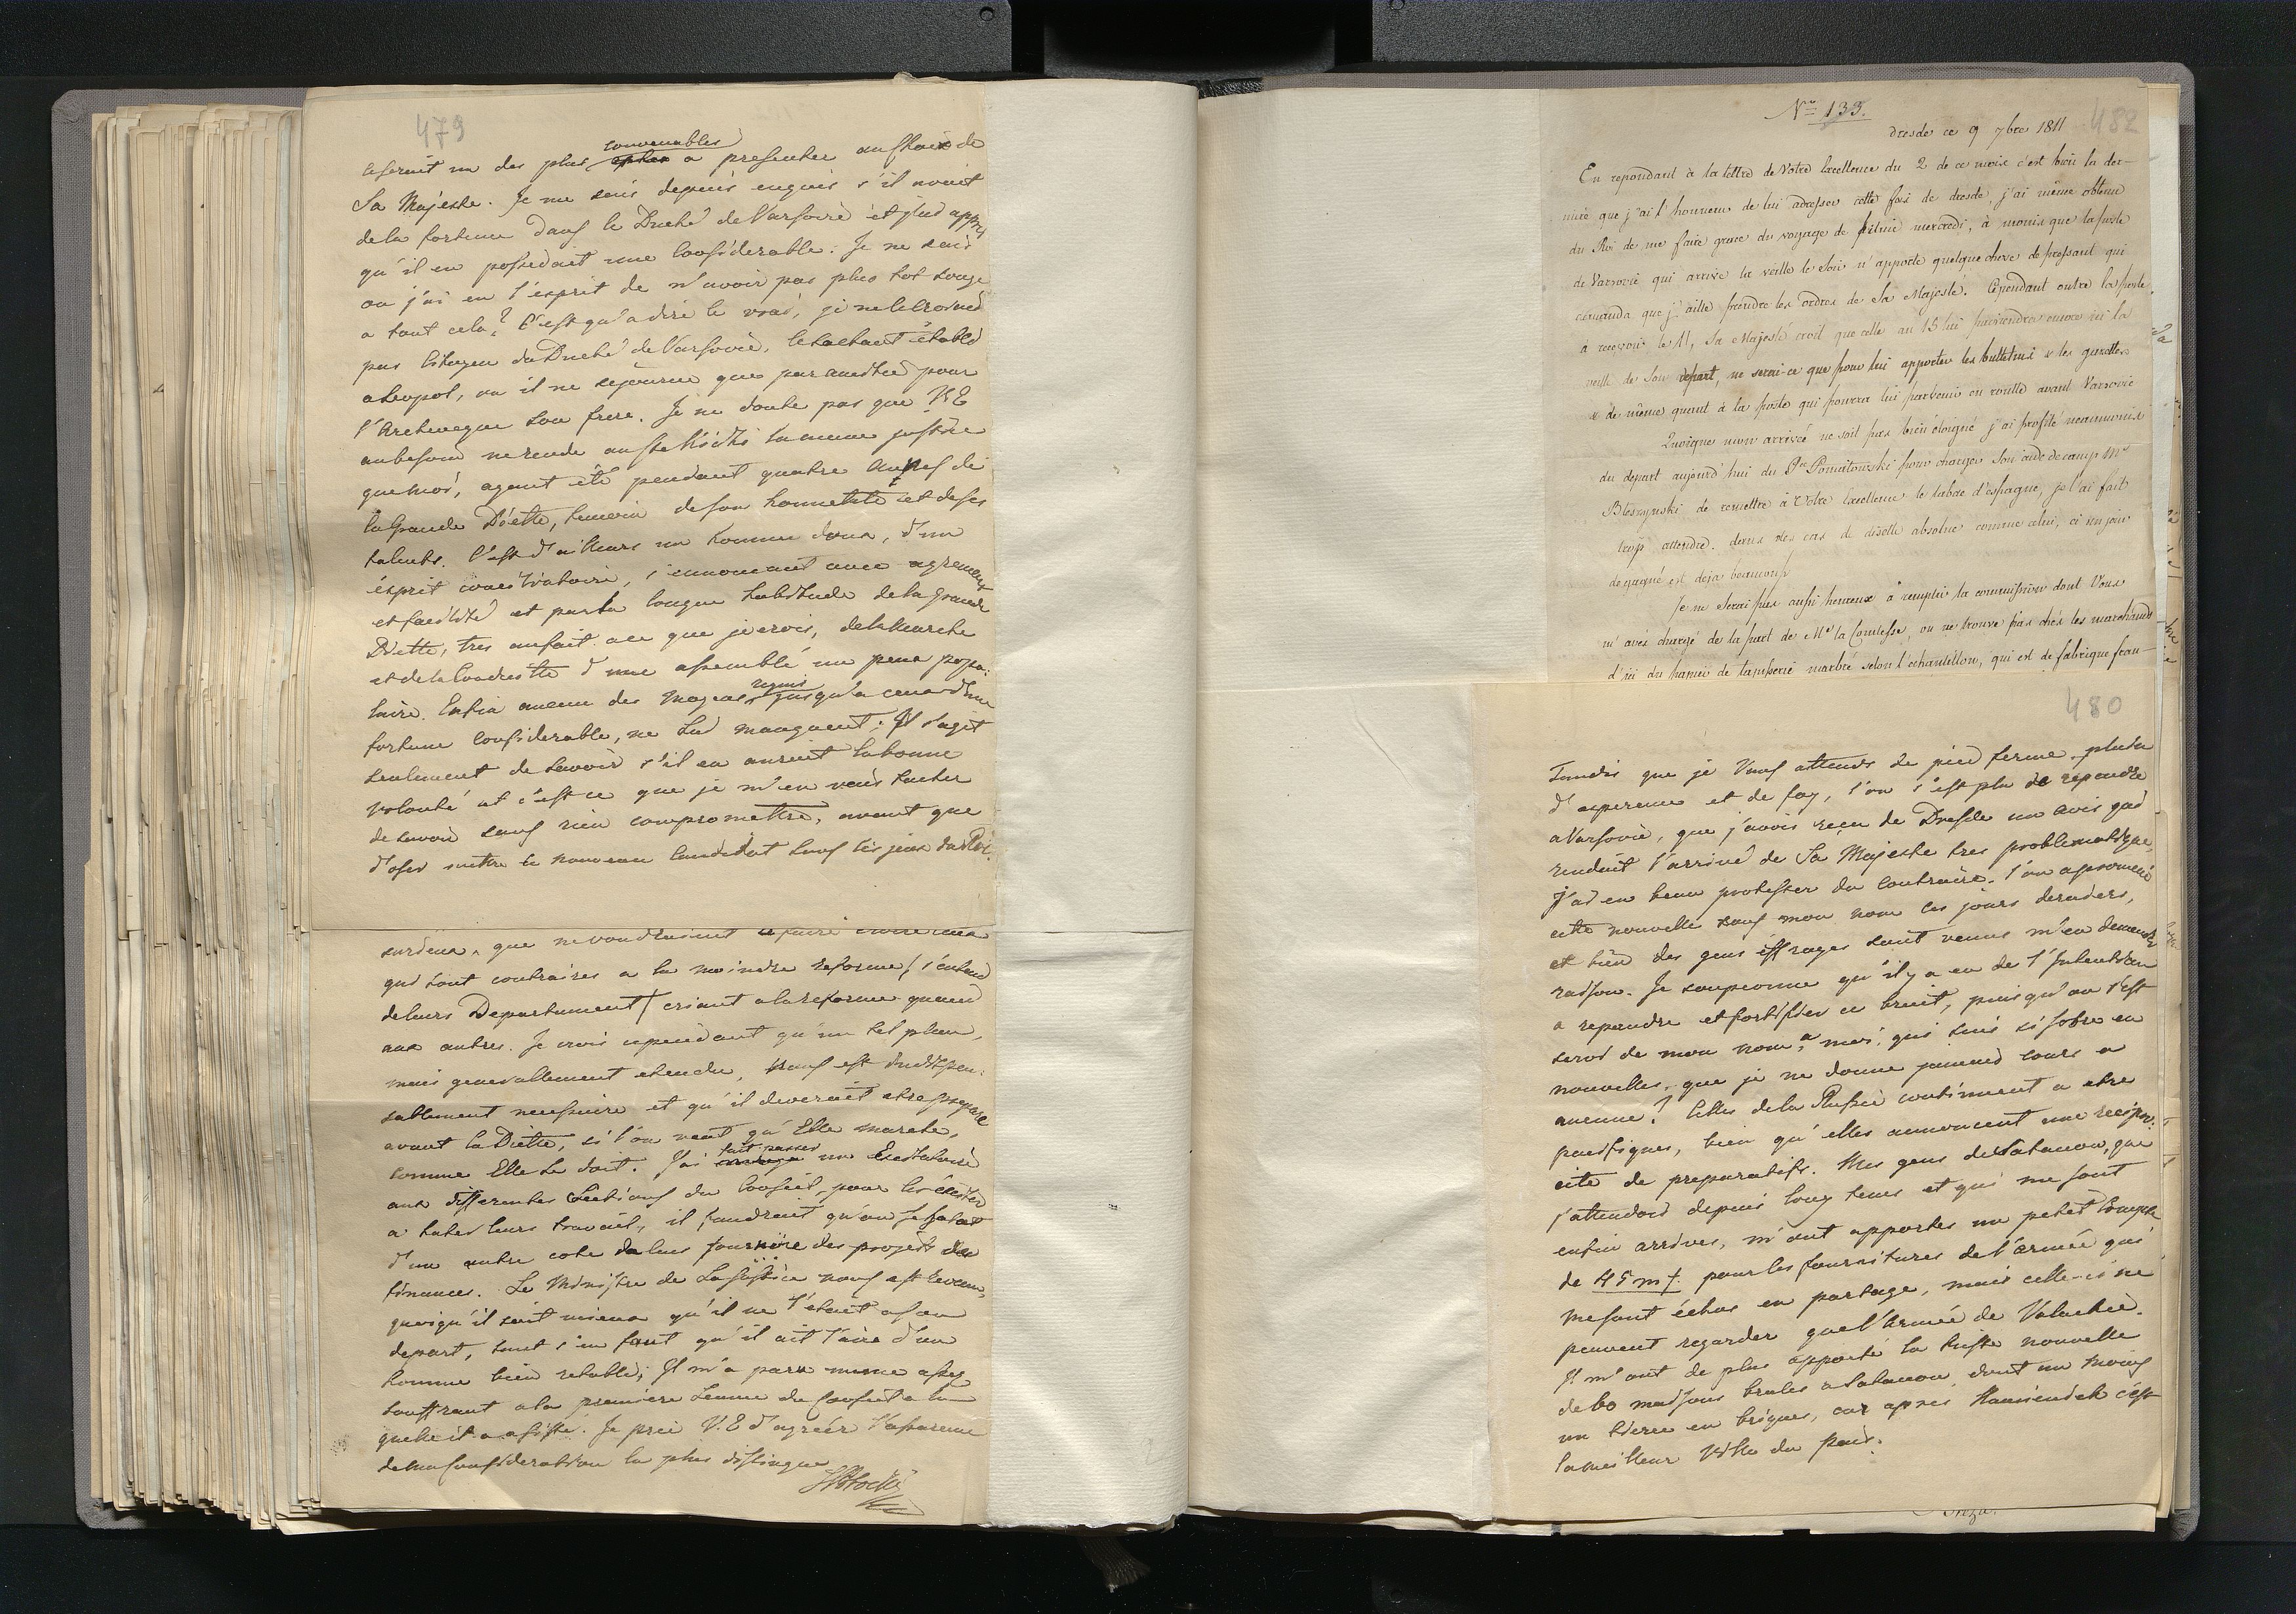 479
convenables
le seroit un des plus a presenter au choix de
Sa Majeste. Je me suis depuis enquis s'il avoit
de la fortune dans le Duché de Varsovie et j'ai appris
qu'il en possedait une considerable. Je ne sais
ou j'ai eu l'esprit de n'avoir pas plus tot songé
a tout cela? C'est qu'a dire le vrai, je ne le croiais
pas Citoyen du Duché de Varsovie, le sachant établi
a Leopol, ou il ne séjourne que par amitié pour
l'Archeveque son frere. Je ne doute pas que V.E
au besoin ne rende la meme justice
que moi, ayant été pendant quatre années de
la Grande Diette, temoin de son honneteté et de ses
talents. C'est d'ailleurs un homme doux, d'un
ésprit conciliatoire, s'ennoncant avec agrement
et facilité et par la longue habitude de la grande
Diette, tres au fait a ce que je crois, de la marche
et de la conduitte d'une assemblé un peu popu-
requis
laire. Enfin aucun des moyens jusqu'a ceux d'une
fortune considerable, ne lui manquent; Il s'agit
seulement de savoir s'il en auroit la bonne
volonté et c'est ce que je m'en vais tacher
de savoir sans rien compromettre, avant que
d'oser mettre ce nouveau Candidat sous les jeux du Roi.
surieux, que ne voudroient
qui sont contraires a la moindre reforme/ s'entend
de leurs Departement/ criant a la reforme quand
aux autres. Je crois cependant qu'un tel plan,
mais generallement etendu, nous est indispen-
sablement necessaire et qu'il deveroit etre preparé
avant la Diette, si l'on veut qu'Elle marche,
comme Elle le doit. J'ai fait passer un Excitatoire
aux differentes Sections du Conseil, pour les exciter
a hater leurs travail, il faudroit qu'on se hatat
d'un autre coté de leur fournire des projets de
finances. Le Ministre de La justice nous est revenu,
quoiqu'il soit mieux qu'il ne l'etait a son
depart, tout s'en faut qu'il ait l'aire d'un
homme bien retabli; Il m'a paru meme assez
souffrant a la premiere seance du Conseil a la-
quelle il a assisté. Je prie V.E d'agréer l'assurence
de ma consideration la plus distingué
SPotocki
Nro 133.
482
Dresde ce 9 7bre 1811
En repondant à la lettre de Votre Excellence du 2 de ce mois c'est bien la der-
niere que j'ai l'honneur de lui adresser cette fois de dresde, j'ai même obtenu
du Roi de me faire grace du voyage de pilnie mercredi, à moins que la poste
de Varsovie qui arrive la veille le soir n'apporte quelque chose de pressant qui
demanda que j'aille prendre les ordres de Sa Majesté. Cependant outre la poste
à recevoir le 11, Sa Majesté croit que celle au 15 lui parviendra encore ici la
veille de son depart, ne serai-ce que pour lui apporter les bulletins & les gazettes
& de même quant à la poste qui pourra lui parvenir en route avant Varsovie
Quoique mon arrivée ne soit pas bien éloigné j'ai profité neanmoins
du depart aujourd'hui du Pce Poniatowski pour charger son aide de camp Mr
Bleszynski de remettre à Votre Excellence le tabac d'espagne, je l'ai fait
trop attendre. dans des cas de disette absolue comme celui, ci un jour
de gagné est deja beaucoup
Je ne serai pas aussi heureux à remplir la commission dont Vous
m'avés chargé de la part de Me la Comtesse, on ne trouve pas chés les marchands
d'ici du papier de tapisserie marbré selon l'echantillon, qui est de fabrique fran-
480
Tandis que je Vous attends de pied ferme, plein
d'esperence et de foy, l'on s'est plu de repandre
a Varsovie, que j'avois reçu de Dresde un avis qui
rendait l'arrivé de Sa Majeste tres problematique,
j'ai eu beau protester du contraire. l'on a promené
cette nouvelle sous mon nom ces jours derniers,
et bien des gens effrayes sont venus m'en demander
raison. Je soupconne qu'il y a eu de l'intention
a repandre et fortifier ce bruit, puisqu'on s'est
servi de mon nom, a moi, qui suis si sobre en
nouvelles, que je ne donne jamais cours a
aucune? Celles de la Russie continuent a etre
pacifiques, bien qu'elles annoncent une recipro-
cité de preparatifs. Mes gens de Satanow, que
j'attendois depuis long tems et qui me sont
enfin arrives, m'ont apportes un petit Compte
de 45 m f. pour les fournitures de l'armée qui
me sont échus en partage, mais celle-ci ne
peuvent regarder que l'Armée de Valachie.
Il m'ont de plus apporté la triste nouvelle
de 60 maisons brules a Satanow, dont au moins
un tierce en briques, car apres Kamieniek c'est
la meilleur Ville du pais.
Breza.